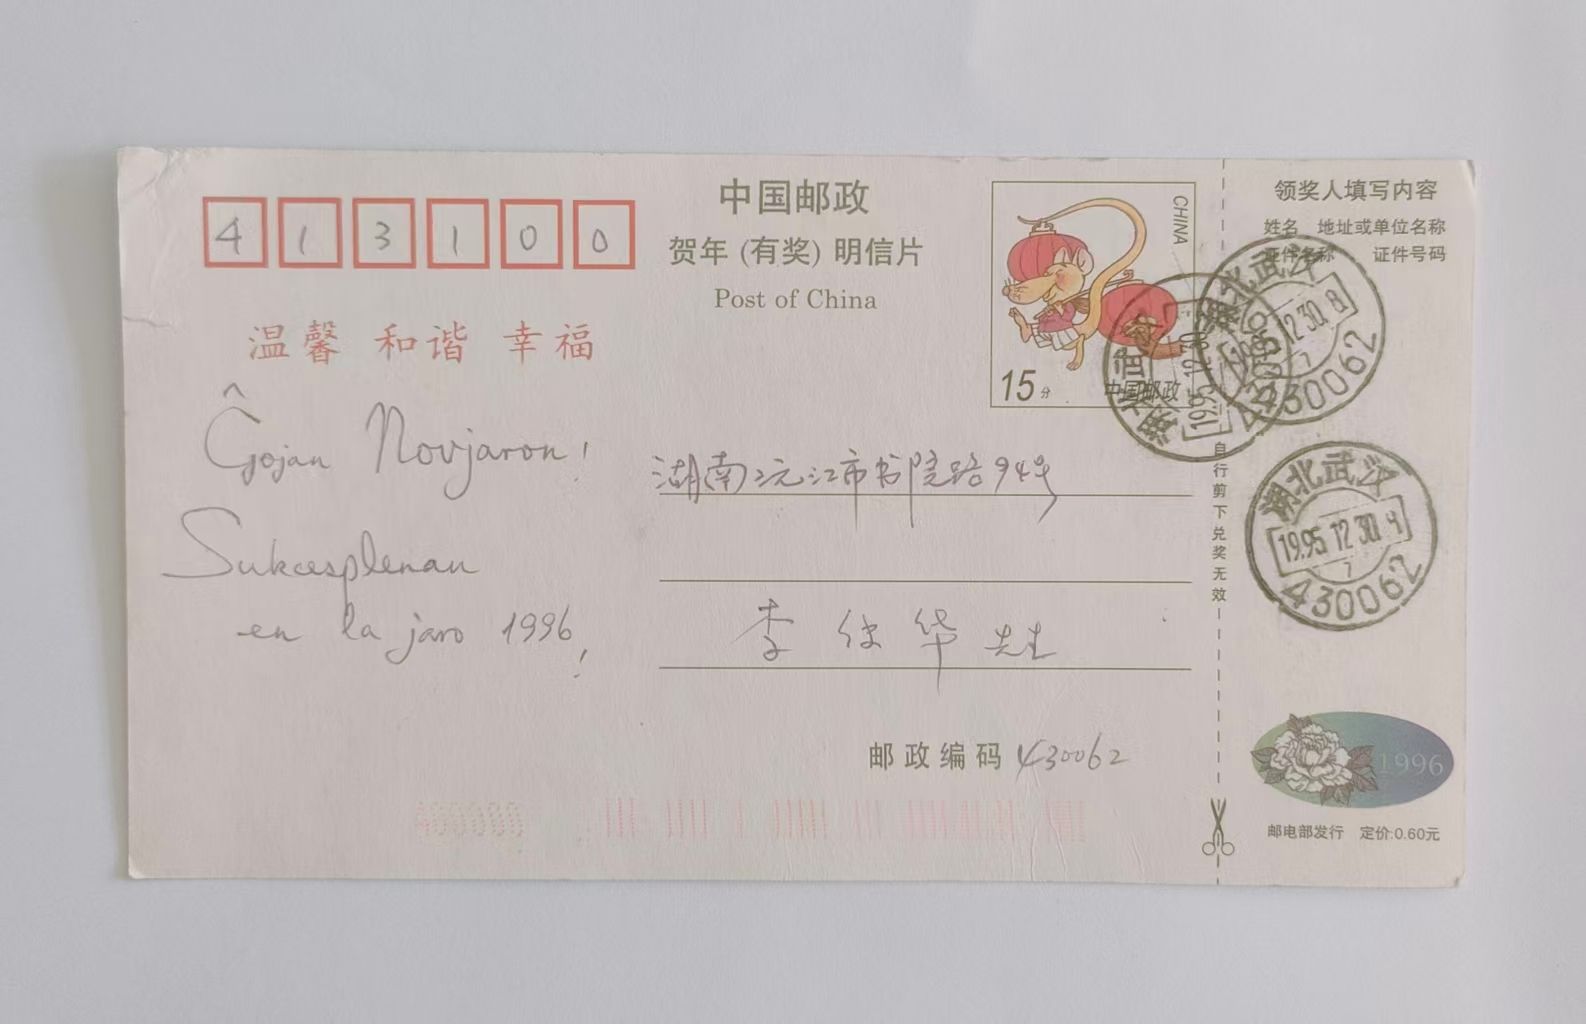 413100
中国邮政
贺年 (有奖) 明信片
Post of China
温馨 和谐 幸福
Ĝojan Novjaron!
Sukcesplenan
en la jaro 1996!
CHINA
15分
中国邮政
湖南沅江市书院路94号
李 华 先生
邮政编码 430062
领奖人填写内容
姓名 地址或单位名称
证件名称 证件号码
湖北武汉
1995 12 30 8
430062
湖北武汉
1995 12 30
湖北武汉
1995 12 30
7
430062
自行剪下兑奖无效
1996
邮电部发行 定价:0.60元